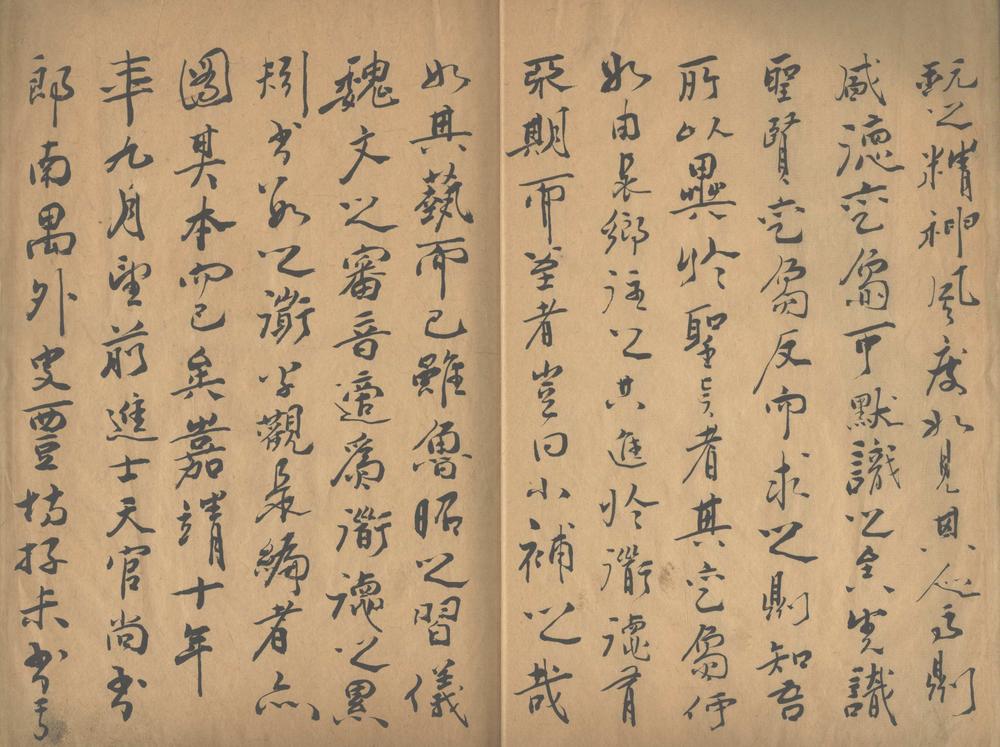 翫之精神風度如見其人焉則
德容貌可默識之識
聖賢容貌反而求之則知吾
所以異於聖者其容貌
如由是鄉往之其進於衟德有
期而至者豈曰小補之哉
如其藝而已雖魯昭之習儀
魏文之審音適爲衟德之累
矧書之衟乎觀是編者亦
圖其本而已矣嘉靖十年
九月望前進士天官尚書
郎南禺外史豐坊存尗書于